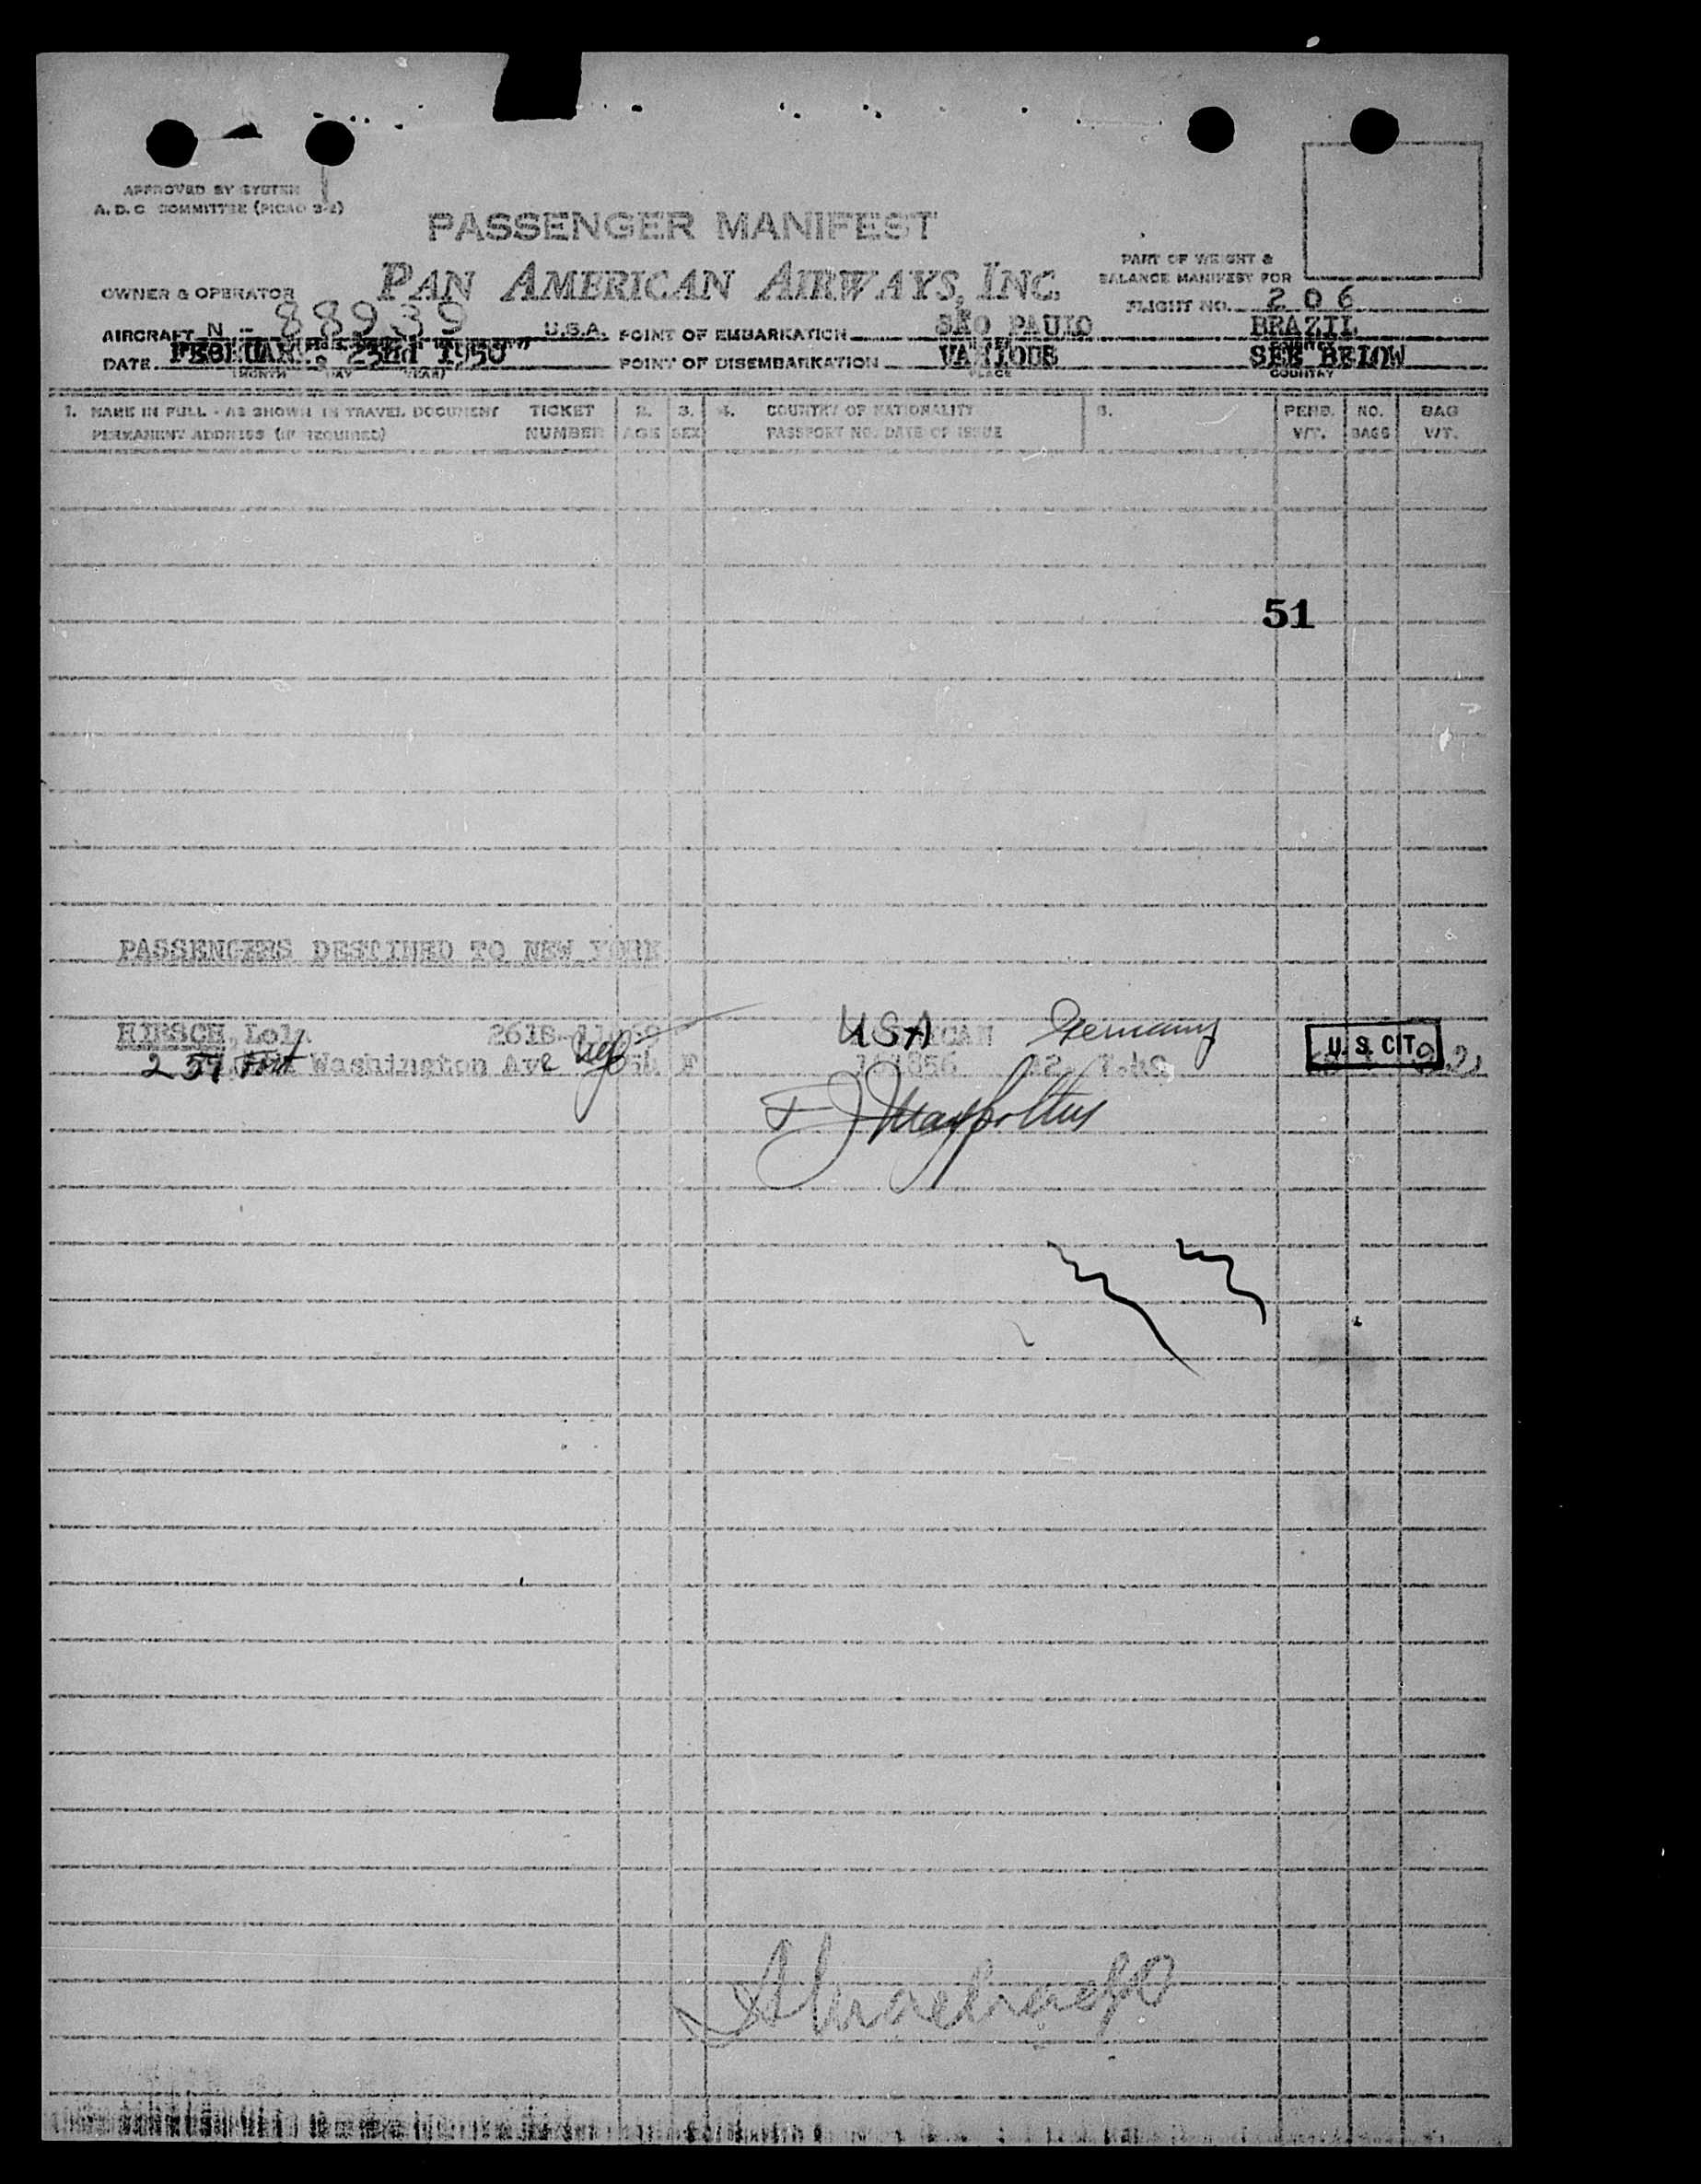 APPROVED BY SYSTEM
A. D. C COMMITTEE (PICAO 3-2)
PASSENGER MANIFEST
PAN AMERICAN AIRWAYS, INC.
PART OF WEIGHT &
BALANCE MANIFEST FOR
FLIGHT NO. 206
OWNER & OPERATOR
AIRCRAFT N - 88939 U.S.A. POINT OF EMBARKATION SÃO PAULO BRAZIL
DATE FEBRUARY 23nd 1950 POINT OF DISEMBARKATION VARIOUS SEE BELOW
(MONTH DAY YEAR) PLACE COUNTRY
1. NAME IN FULL - AS SHOWN IN TRAVEL DOCUMENT TICKET 2. 3. 4. COUNTRY OF NATIONALITY 5. PERS. NO. BAG
PERMANENT ADDRESS (IF REQUIRED) NUMBER AGE SEX PASSPORT NO. DATE OF ISSUE WT. BAGS WT.
51
PASSENGERS DESTINED TO NEW YORK
HIRSCH, Lola USA Germany
Fort Washington Ave F U.S. CIT.